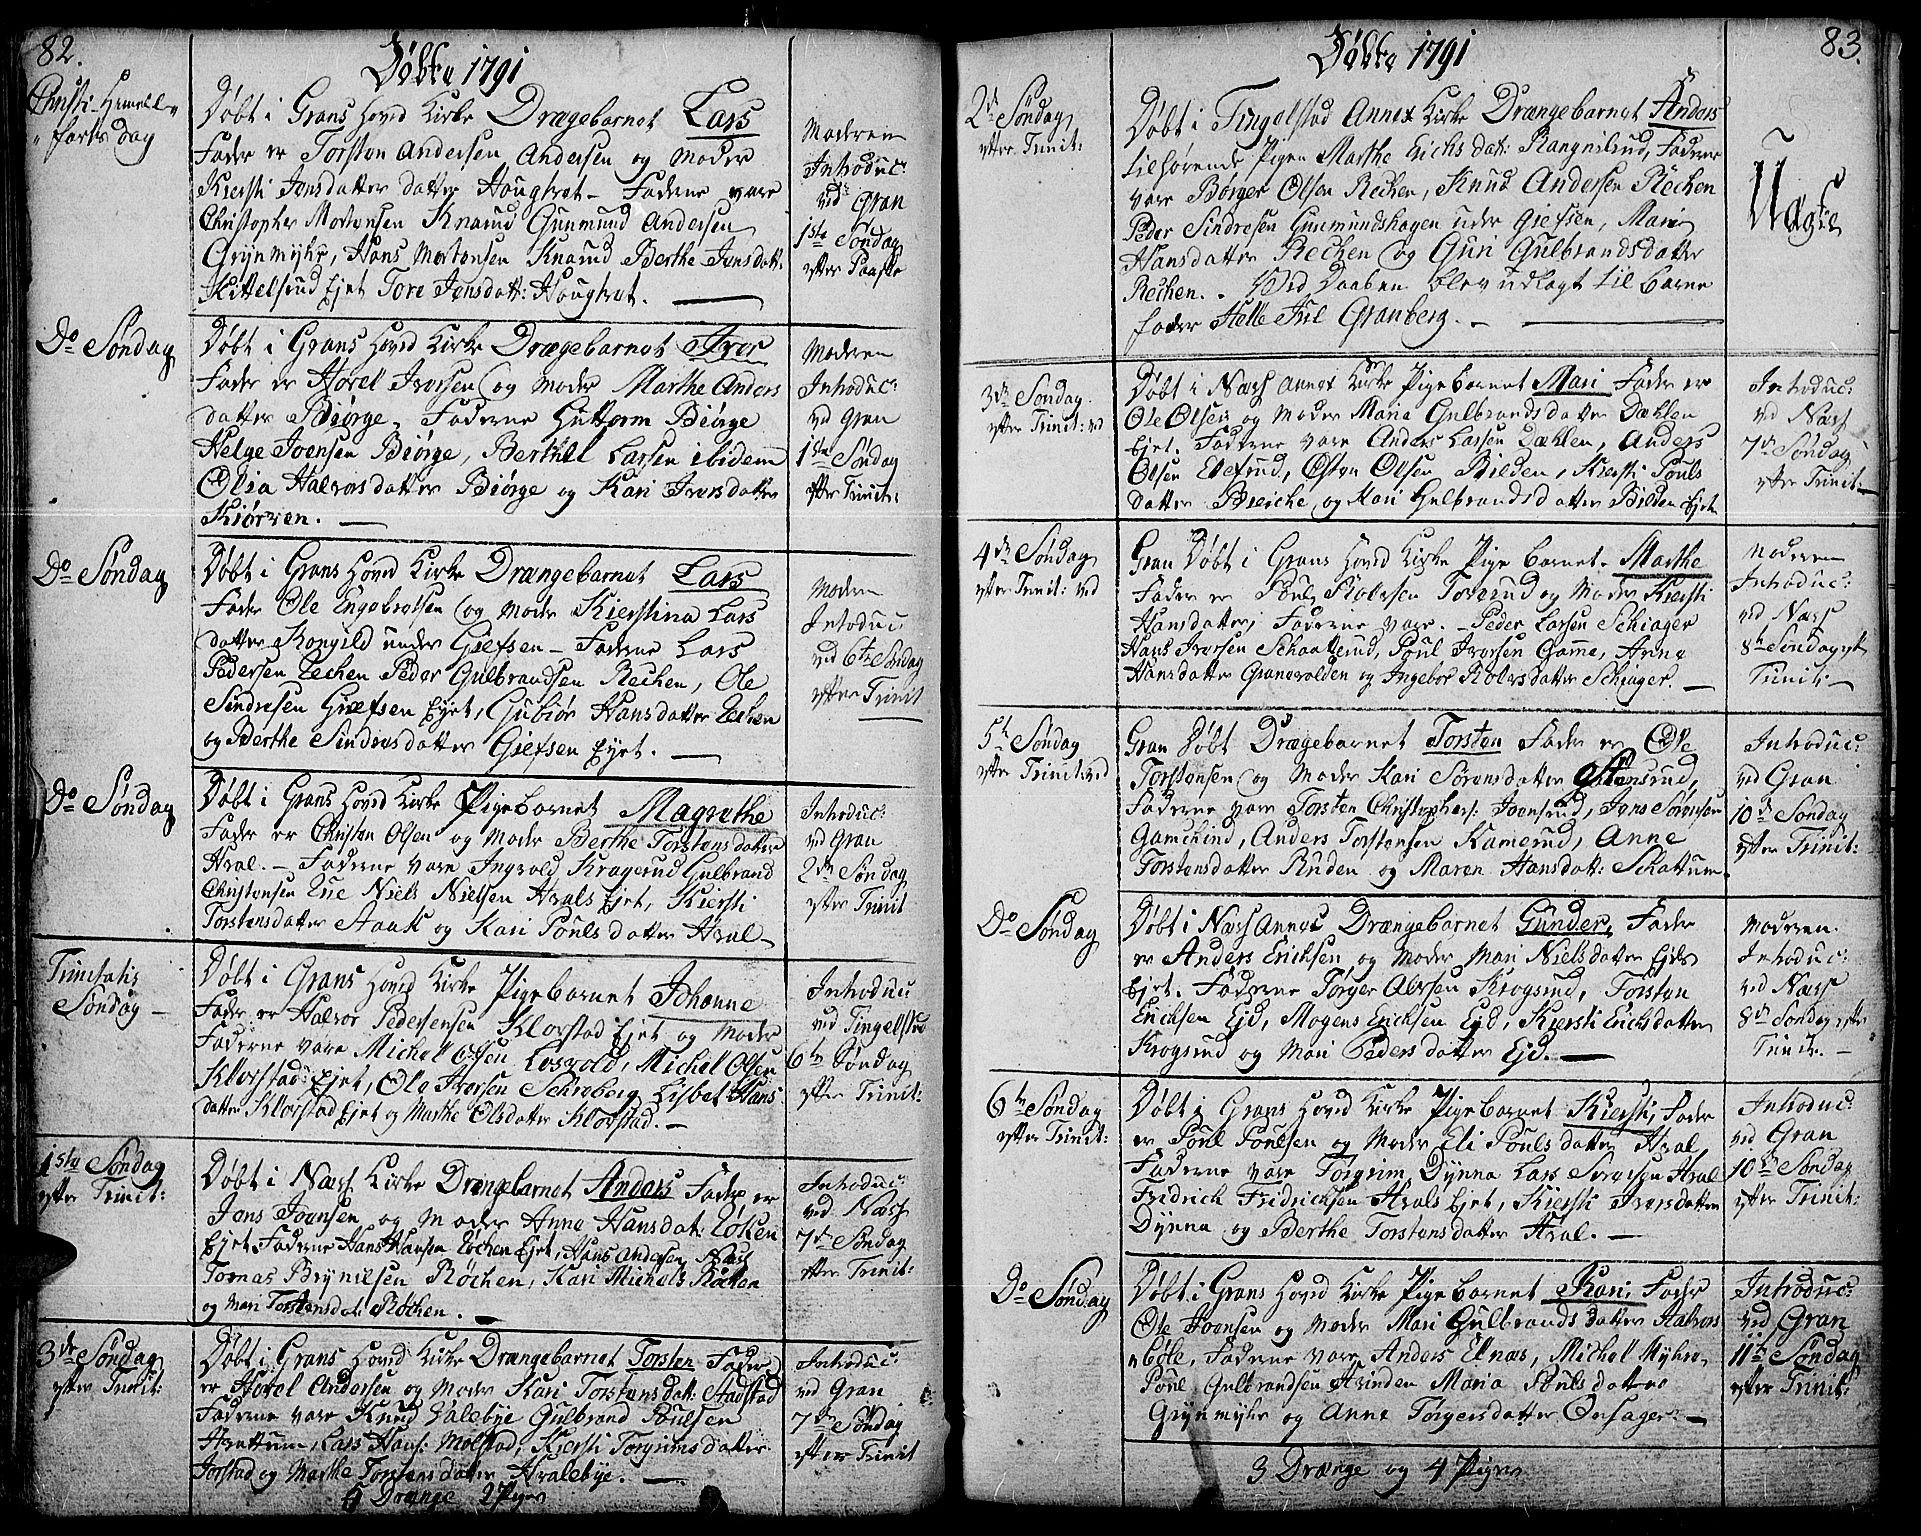 82.
Døbte 1791
Christi Himmel-
farts dag
Døbt i Grans Hoved Kirke Drængebarnet Lars
Fader er Torsten Andersen Andersen og Moder
Kiersti Jensdatter datter Hougtvet - Faderne vare
Christopher Mortensen Knarud Gunmund Andersen
Grynmyhr, Hans Mortensen Knarud Berthe Jensdatt:
Kittelsrud Ejet Tore Jensdatt: Hougtvet.
Moderen
Introduc:
ved Gran
1ste Søndag
efter Paaske
Do Søndag
Døbt i Grans Hoved Kirke Drægebarnet Iver
Fader er Hovel Iversen og Moder Marthe Anders
datter Biørge. Faderne Guttorm Biørge
Helge Joensen Biørge, Berthel Larsen ibidem
Olia Halvorsdatter Biørge og Kari Iversdatter
Kiørven.
Moderen
Introduc:
ved Gran
1ste Søndag
efter Trinit:
Do Søndag
Døbt i Grans Hoved Kirke Drængebarnet Lars
Fader Ole Engebretsen og Moder Kierstina Lars
datter Kongild under Giefsen - Faderne Lars
Pedersen Rechen Peder Gulbrandsen Rechen, Ole
Sindresen Giefsen Ejet, Gubiør Hansdatter Rechen
og Berthe Sindresdatter Giefsen Ejet.
Modern
Introduc:
ved 6te Søndag
efter Trinit
Do Søndag
Døbt i Grans Hoved Kirke Pigebarnet Magrethe
Fader er Christen Olsen og Moder Berthe Torstensdatter
Hval. - Faderne vare Ingvold Kragerud Gulbrand
Christensen Niels Nielsen Hvals Ejet, Kiersti
Torstensdatter Aaak og Kari Pouls datter Hval
Introduc:
ved Gran
2den Søndag
efter Trinit
Trinitatis
Søndag
Døbt i Grans Hoved Kirke Pigebarnet Johanne
Fader er Halvor Pedersen Klovstad Ejet og Moder
Faderne vare Michel Olsen Losvold, Michel Olsen
Klovstad Ejet, Ole Iversen Schreberg Lisbet Hans
datter Klovstad Ejet og Marthe Olsdatter Klovstad.
Introduc
ved Tingelstad
6te Søndag
efter Trinit:
1ste Søndag
efter Trinit:
Døbt i Næss Kirke Drængebarnet Anders Fader er
Jens Joensen og Moder Anne Hansdat: Røken
Ejet Faderne Hans Hansen Røchen Ejet, Hans Andersen Næss
Tomas Brynilsen Røchen, Kari Michels
og Mari Torstensdat: Røchen.
Introduc:
ved Næss
7de Søndag
efter Trinit:
3de Søndag
efter Trinit:
Døbt i Grans Hoved Kirke Drængebarnet Torsten Fader
er Hovel Andersen og Moder Kari Torstensdatt: Hadstad
Faderne vare Knud Dalebye Gulbrand Poulsen
Hvattum, Lars Hans: Molstad, Kiersti Torgrimsdatter
Jorstad og Marthe Torstensdatter Hvalebye.
6 Drænge 2 Piger
Introduc:
ved Gran
7de Søndag
efter Trinit
83.
Døbte 1791
2de Søndag
efter Trinit:
Døbt i Tingelstad Annex Kirke Drængebarnet Anders
tilhørende Pigen Marthe Erichs dat: Rangnilrud, Faderne
vare Børger Olsen Rechen, Knud Andersen Rechen
Peder Sindresen Gunmundshagen under Giefsen, Mari
Hansdatter Rechen og Guri Gulbrandsdatter
Rechen. Ved Daaben blev udlagt til Barne
fader Helle Juul Granberg.
Uægte
3de Søndag
efter Trinit: ved
Døbt i Næss Annex Kirke Pigebarnet Mari Fader er
Ole Olsen og Moder Maria Gulbrandsdatter Dæhlen
Ejet. Faderne vare Anders Larsen Dæhlen, Anders
Olsen Elefrud, Østen Olsen Bilden, Kiersti Pouls
datter Bleiche, og Mari Gulbrandsdatter Bilden Ejet
Introduc:
ved Næss
7de Søndag
efter Trinit:
4de Søndag
efter Trinit: ved
Gran Døbt i Grans Hoved Kirke Pige Barnet. Marthe
Fader er Poul Rolvsen Tomrud og Moder Kiersti
Hansdatter Faderne vare. - Peder Larsen Schiager
Hans Iversen Schaatterud, Poul Iversen Gamme, Anne
Hansdatter Granevolden og Ingebor Rolvsdatter Schiager.
Moderen
Introduc:
ved Næss
8de Søndag eft
Trinit:
5te Søndag
efter Trinit: ved
Gran Døbt Drægebarnet Torsten Fader er Ole
Torstensen og Moder Kari Sørensdatter Stensrud,
Faderne vare Torsten Christophers: Joensrud, Jens Sørensen
Gamckind, Anders Torstensen Kamerud, Anne
Torstensdatter Rinden og Maren Hansdatt: Schattum
Introduc:
ved Gran
10de Søndag
efter Trinit:
Do Søndag
Døbt i Næss Annex Drængebarnet Gunder, Fader
er Anders Ericksen og Moder Mari Nielsdatter Ejds
Ejet. Faderne Tørger Alversen Krogsrud, Torsten
Ericksen Ejd, Mogens Ericksen Ejd, Kiersti Ericksdatter
Krogsrud og Mari Pedersdatter Ejd.
Moderen
Introduc:
ved Næss
8de Søndag efter
Trinit.
6te Søndag
efter Trinit:
Døbt i Grans Hoved Kirke Pigebarnet Kiersti, Fader
er Poul Poulsen og Moder Eli Poulsdatter Hval
Faderne vare Torgrim Dynna Lars Iversen Hval
Fridrich Fridricksen Hvals Ejet, Kiersti Iversdatter
Dynna og Berthe Torstensdatter Hval.
Introduc:
ved Gran
10de Søndag
efter Trinit:
Do Søndag
Døbt i Grans Hoved Kirke Pigebarnet Kari, Fader
Ole Joensen og Moder Mari Gulbrands datter Halvors
bøle, Faderne vare Anders Elnæs, Michel Myhre
Poul Gulbrandsen Hvinden Maria Pouls datter
Grynmyhr og Anne Tørgersdatter Onsager.
Introduc:
ved Gran
11te Søndag
efter Trinit:
3 Drænge og 4 Piger